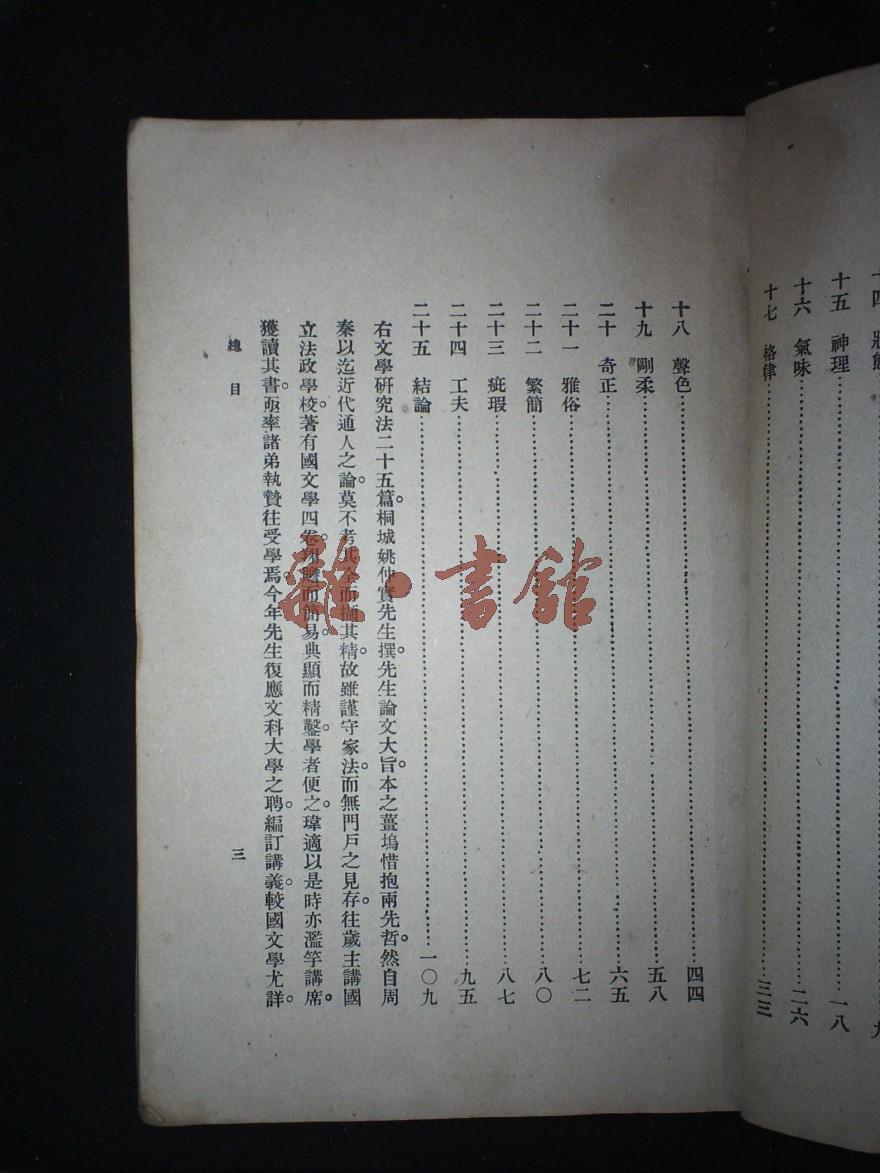 十五 神理……一八
十六 氣味……二六
十七 格律……三三
十八 聲色……四四
十九 剛柔……五八
二十 奇正……六五
二十一 雅俗……七二
二十二 繁簡……八〇
二十三 疵瑕……八七
二十四 工夫……九五
二十五 結論……一〇九
右文學研究法二十五篇。桐城姚仲實先生撰。先生論文大旨。本之薑塢惜抱兩先哲。然自周
秦以迄近代通人之論。莫不考其全而擷其精。故雖謹守家法。而無門戶之見存。往歲主講國
立法政學校。著有國文學四卷。而簡易。典顯而精鑿。學者便之。瑋適以是時亦濫竽講席。
獲讀其書。亟率諸弟執贄往受學焉。今年先生復應文科大學之聘。編訂講義。較國文學尤詳。
總目
三
雜·書館